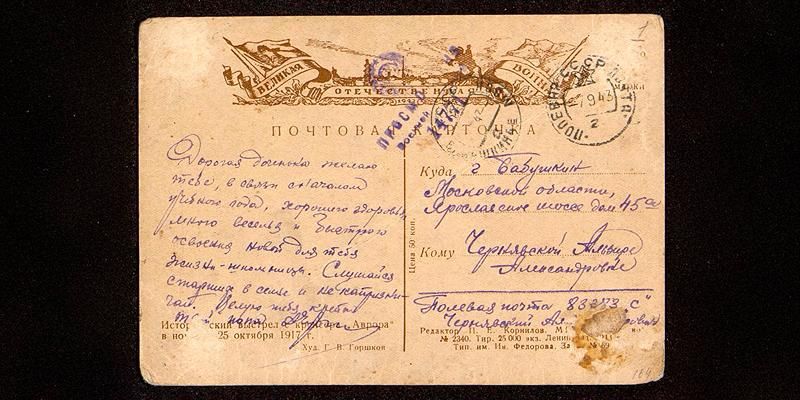 ВЕЛИКАЯ
ОТЕЧЕСТВЕННАЯ
ПОЧТОВАЯ
ПРОСМО
Военной
ПОЛЕВАЯ
7 9 43
2
марки
Дорогая доченька желаю
тебе, в связи с началом
учебного года, хорошего здоровья,
много веселья и быстрого
освоения новой для тебя
жизни-школьницы. Слушайся
старших в семье и не капризни-
чай. Целую тебя крепко
папа
Куда г Бабушкин
Московской области,
Ярославское шоссе дом 45
Кому Чернявской
Александровне
Полевая почта
Чернявский
Цена 50 коп.
выстрел крейсера „Аврора“
25 октября 1917 г.
Худ. Г. В. Горшков
Редактор П. Е. Корнилов.
№ 2340. Тир. 25 000 экз.
Тип. им. Ив. Федорова.